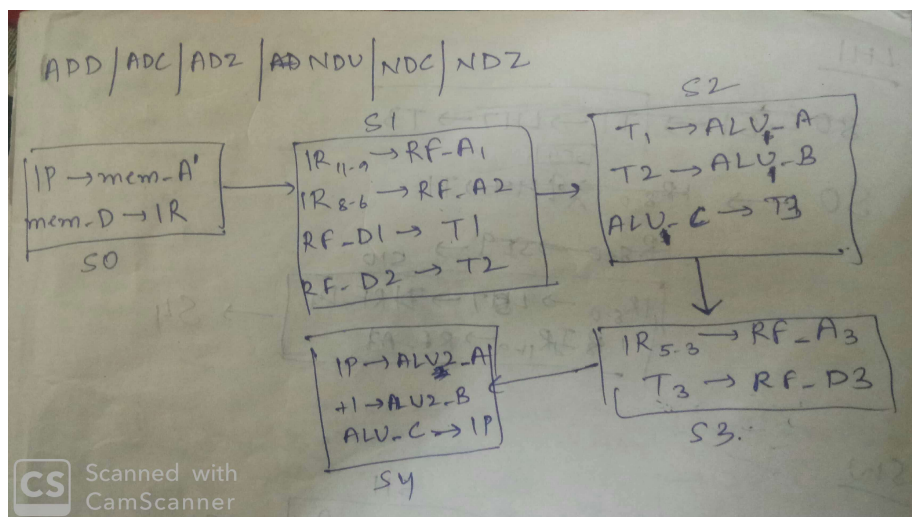 ADD/ADC/ADZ/NDU/NDC/NDZ
IP → mem-A'
mem-D → IR
S0
S1
IR11-9 → RF-A1
IR8-6 → RF-A2
RF-D1 → T1
RF-D2 → T2
S2
T1 → ALU-A
T2 → ALU-B
ALU-C → T3
IR5-3 → RF-A3
T3 → RF-D3
S3.
IP → ALU2-A
+1 → ALU2-B
ALU-C → IP
S4
CS Scanned with
CamScanner